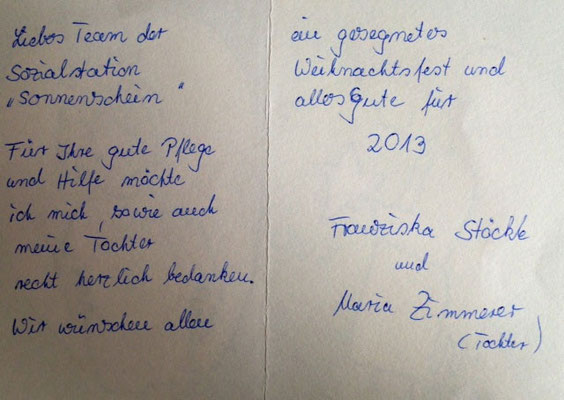 Liebes Team der
Sozialstation
„Sonnenschein"
Für Ihre gute Pflege
und Hilfe möchte
ich mich, sowie auch
meine Tochter
recht herzlich bedanken.
Wir wünschen allen
ein gesegnetes
Weihnachtsfest und
alles Gute für
2013
Franziska Stöckle
und
Maria Zimmerer
(Tochter)